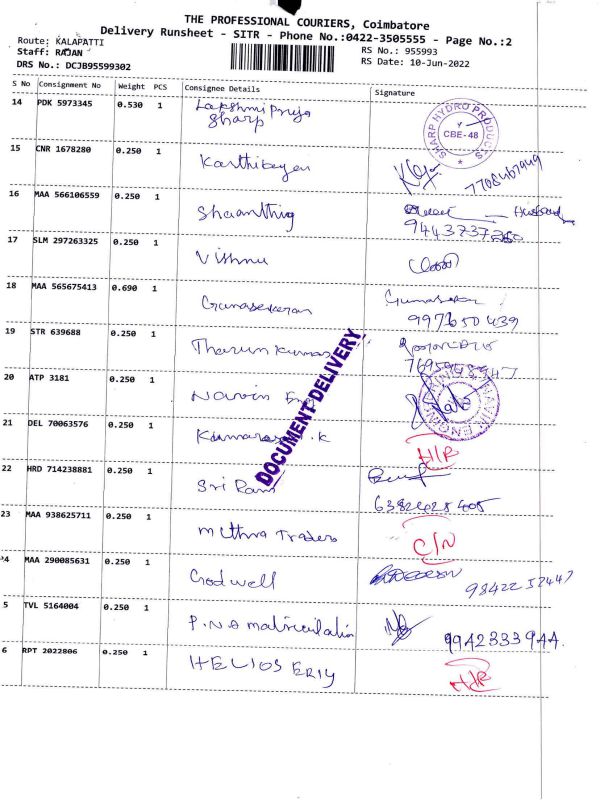 THE PROFESSIONAL COURIERS, Coimbatore
Delivery Runsheet - SITR - Phone No.:0422-3505555 - Page No.:2
Route: KALAPATTI
Staff: RAJAN
DRS No.: DCJB95599302
RS No.: 955993
RS Date: 10-Jun-2022
S No Consignment No Weight PCS Consignee Details Signature
14 PDK 5973345 0.530 1 Lakshmi Priya
Sharp
SHARP HYDRO PRODUCTS
CBE-48
15 CNR 1678280 0.250 1 Karthikeyan
7708467949
16 MAA 566106559 0.250 1 Shaanthig
Husband
17 SLM 297263325 0.250 1 Vishnu
18 MAA 565675413 0.690 1 Gunasekaran Gunasekar
997650439
19 STR 639688 0.250 1 Tharun Kumar
20 ATP 3181 0.250 1 Narvin Eng
DOCUMENT DELIVERY
21 DEL 70063576 0.250 1 .K
H/R
22 HRD 714238881 0.250 1 Sri Ram
23 MAA 938625711 0.250 1 Mithra Traders
C/N
4 MAA 290085631 0.250 1 Godwell
98422 32447
5 TVL 5164004 0.250 1 P.N.A matriculation
9942333944
6 RPT 2022806 0.250 1 HELIOS ERIY
H/R